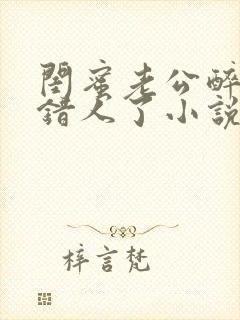 閨蜜老公醉
錯人了小說
梓言梵